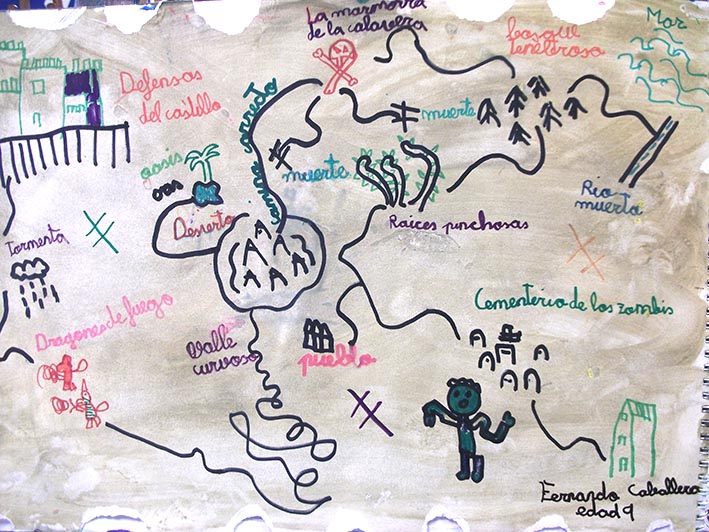 La marmorra
de la calavera
bosque
tenebroso
Mar
Defensas
del castillo
camino correcto
muerte
oasis
muerte
Desierto
Rio
muerto
Raices pinchosas
Tormenta
Cementerio de los zombis
Dragones de fuego
Valle
curvoso
pueblo
Fernando Caballero
edad 9